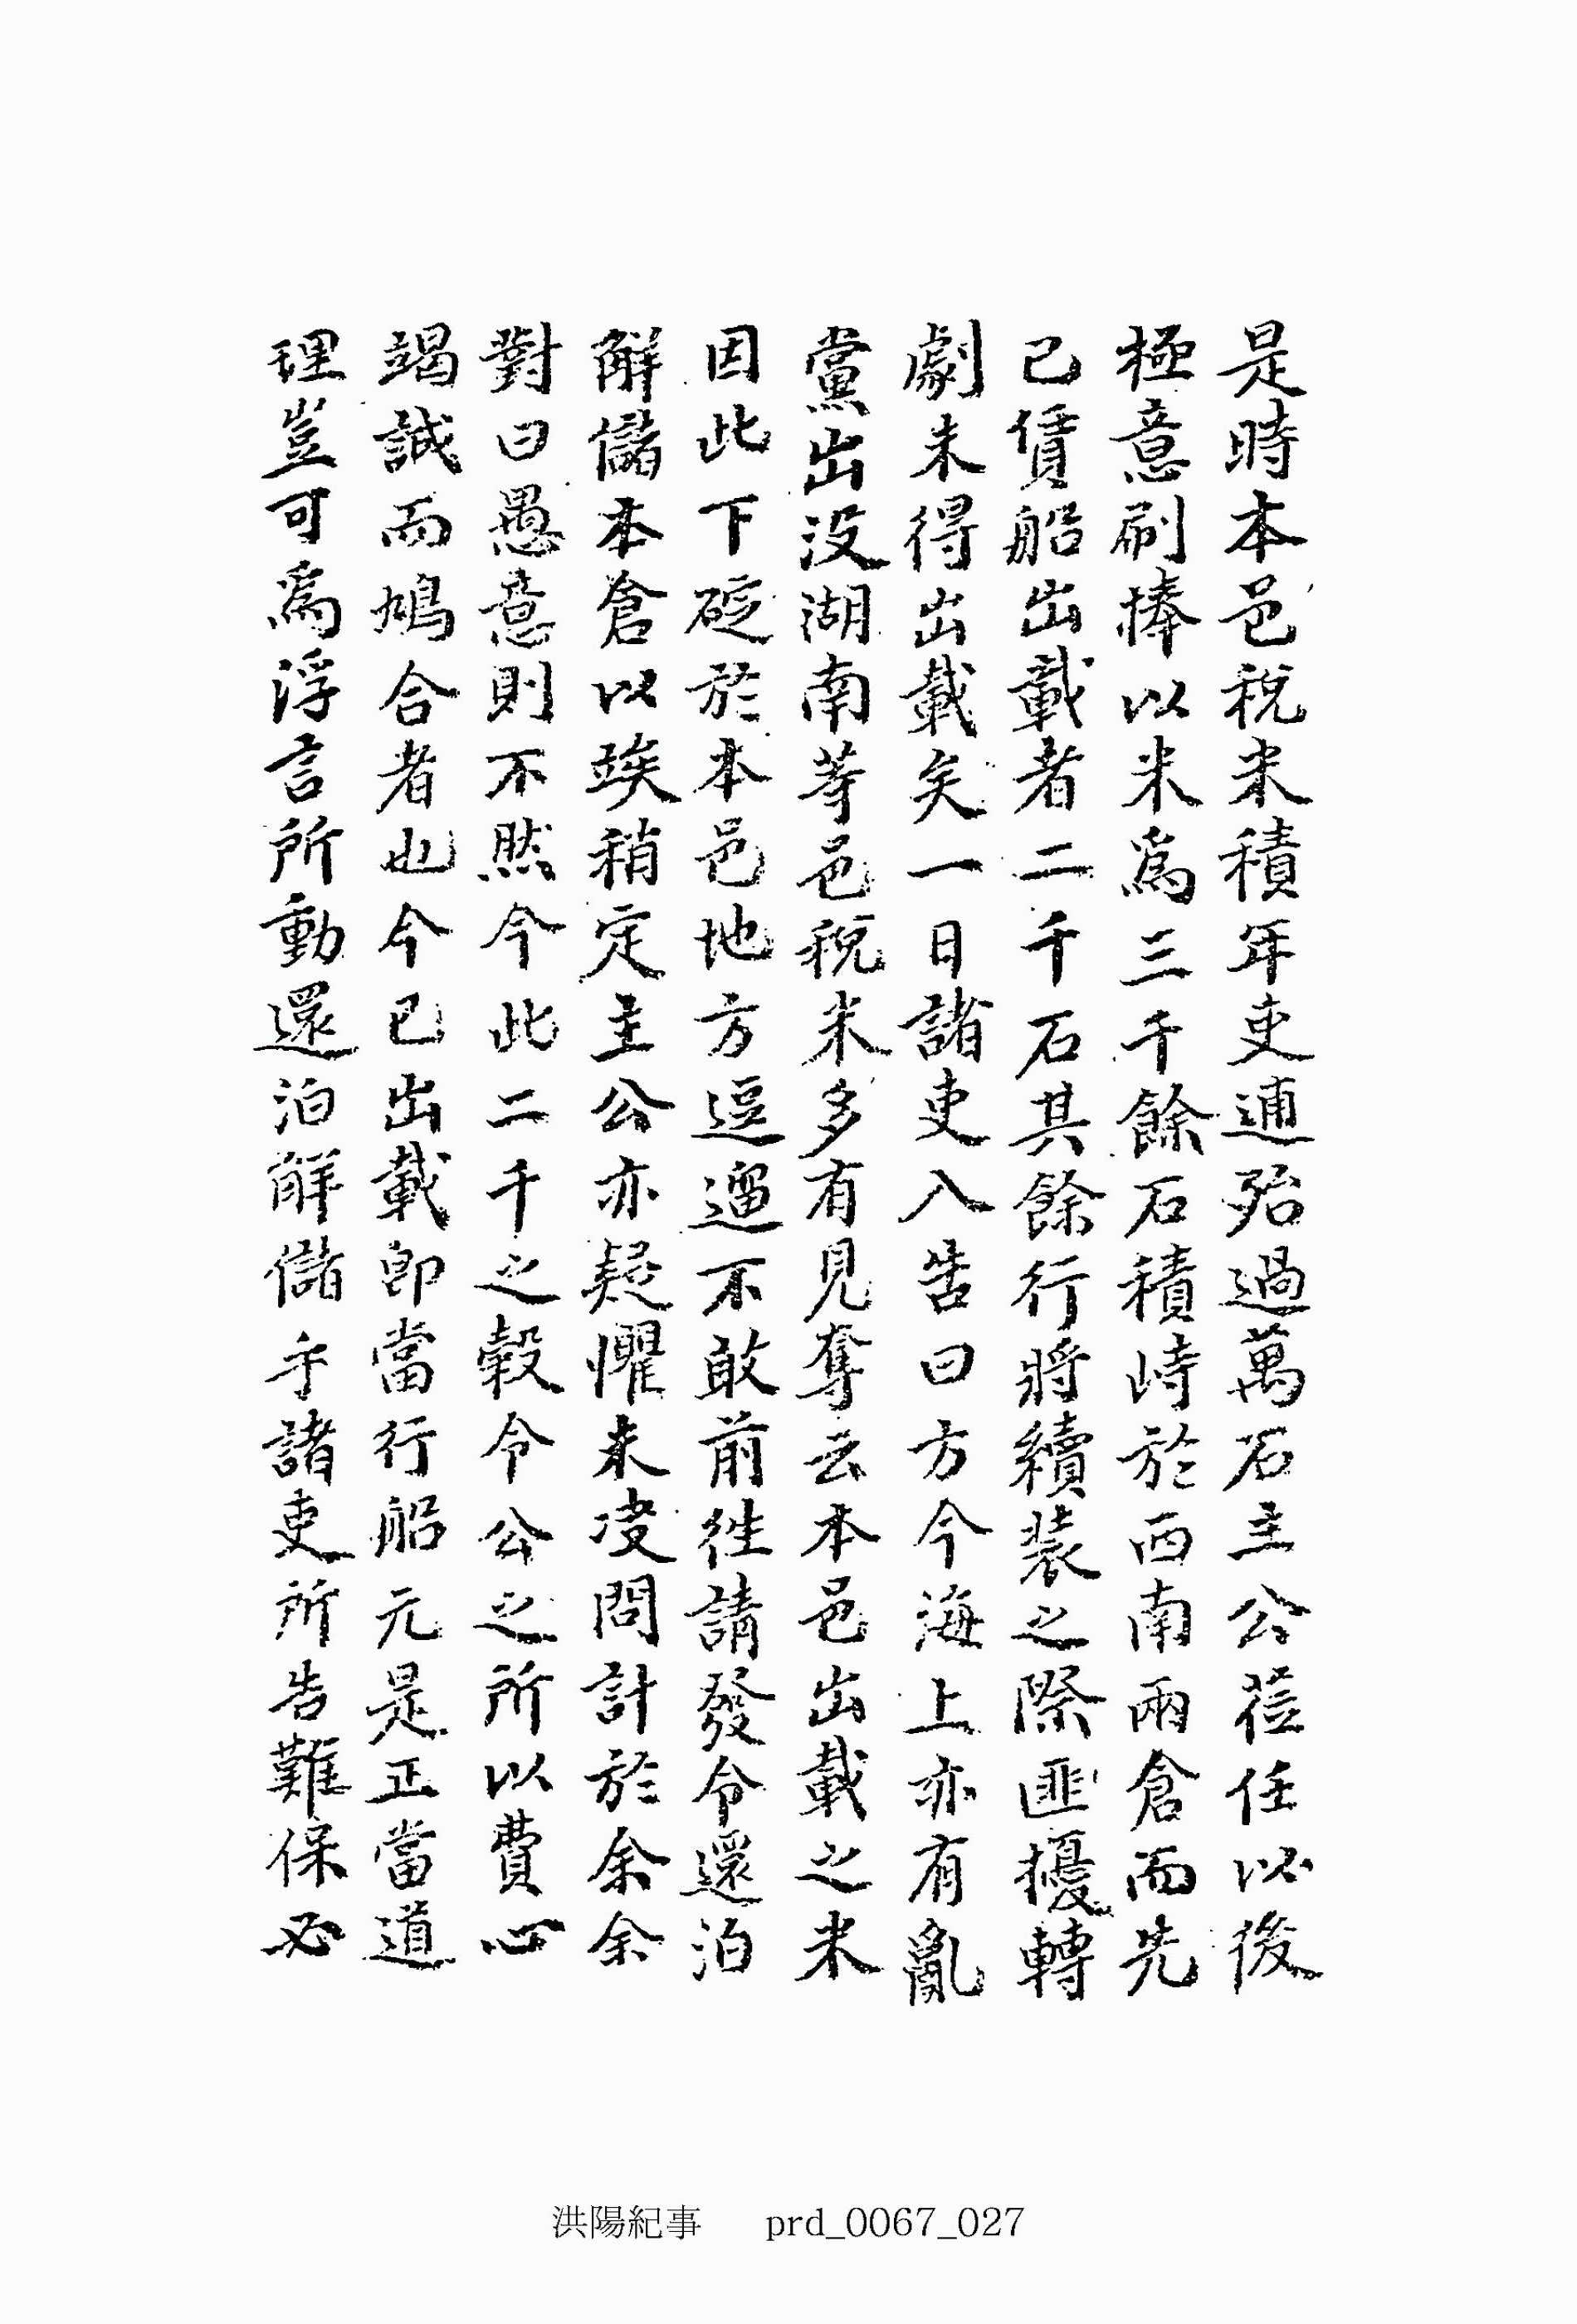 是時本邑稅米積年吏逋殆過萬石主公莅任以後
極意刷捧以米爲三千餘石積峙於西南兩倉而先
已賃船出載者二千石其餘行將續装之際匪擾轉
劇未得出載矣一日諸吏入告曰方今海上亦有亂
黨出没湖南等邑稅米多有見奪云本邑出載之米
因此下碇於本邑地方逗遛不敢前徃請發令還泊
解儲本倉以竢稍定主公亦疑懼未决問計於余余
對曰愚意則不然今此二千之穀令公之所以費心
竭誠而鳩合者也今已出載卽當行船元是正當道
理豈可爲浮言所動還泊解儲乎諸吏所告難保必
洪陽紀事 prd_0067_027